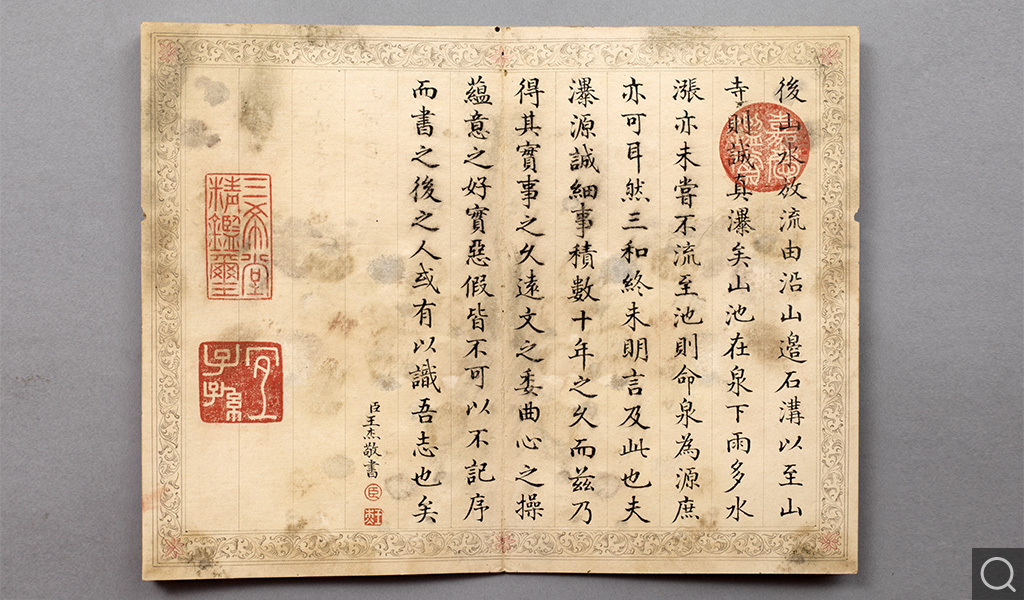 後山水放流由沿山邊石溝以至山
寺則誠真瀑矣山池在泉下雨多水
漲亦未嘗不流至池則命泉為源庶
亦可耳然三和終未明言及此也夫
瀑源誠細事積數十年之久而茲乃
得其實事之久遠文之委曲心之操
蘊意之好實惡假皆不可以不記序
而書之後之人或有以識吾志也矣
臣王杰敬書
臣
三希堂
精鑑璽
宜
子孫